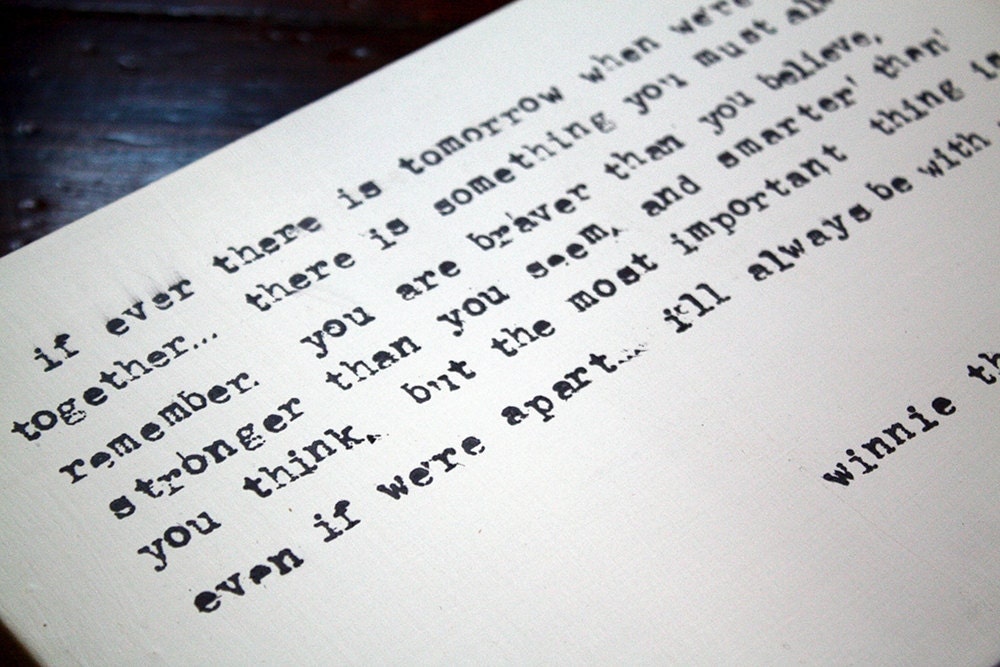 if ever there is tomorrow when we're
together... there is something you must
remember. you are braver than you believe,
stronger than you seem, and smarter' than'
you think, but the most important thing is
even if we're apart... i'll always be with
winnie